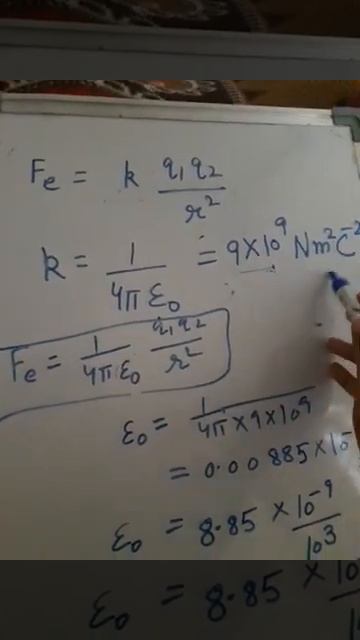 Fe = k q₁q₂/r²
k = 1/4π ε₀ = 9×10⁹ Nm²C⁻²
Fe = 1/4π ε₀ q₁q₂/r²
ε₀ = 1/4π×9×10⁹
= 0.00885×10
ε₀ = 8.85 × 10⁻⁹/10³
ε₀ = 8.85 × 10